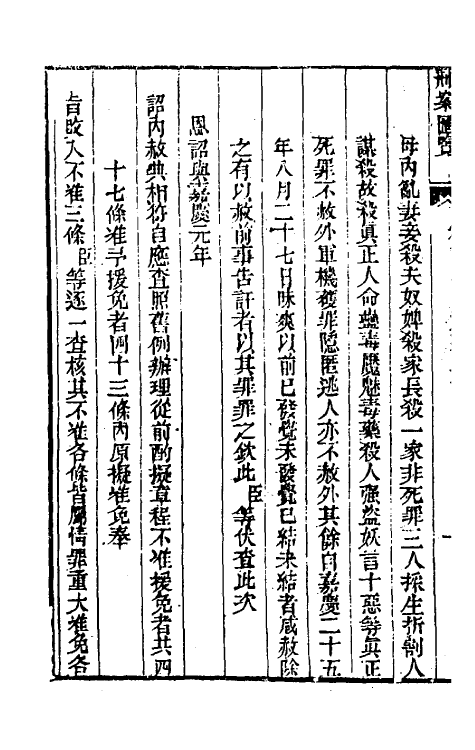 刑案匯覽
母內亂妻妾殺夫奴婢殺家長殺一家非死罪三人採生折割人
謀殺故殺眞正人命蠱毒魘魅毒藥殺人强盜妖言十惡等眞正
死罪不赦外軍機獲罪隱匿逃人亦不赦外其餘自嘉慶二十五
年八月二十七日昧爽以前已發覺未發覺已結未結者咸赦除
之有以赦前事告訐者以其罪罪之欽此臣等伏查此次
恩詔與嘉慶元年
詔內赦典相符自應查照舊例辦理從前酌擬章程不准援免者共四
十七條准予援免者四十三條內原擬准免奉
旨改入不准三條臣等逐一查核其不准各條皆屬情罪重大准免各